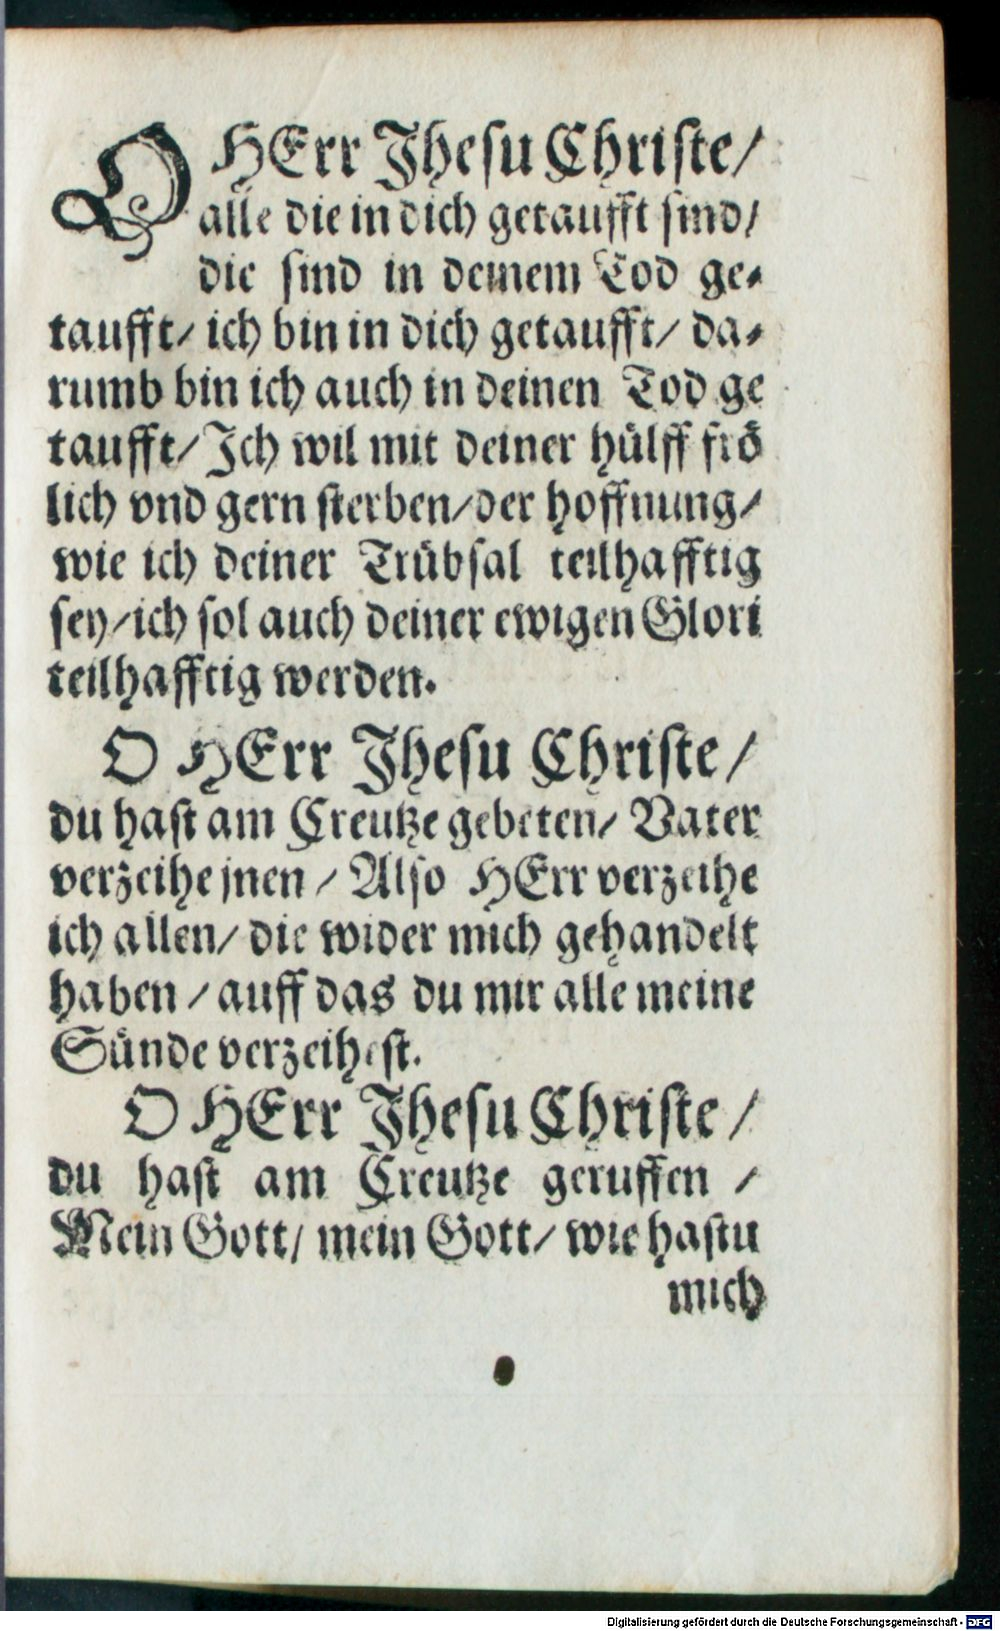 O HErr Jhesu Christe/
alle die in dich getaufft sind/
die sind in deinem Tod ge-
taufft/ ich bin in dich getaufft/ da-
rumb bin ich auch in deinen Tod ge
taufft/ Jch wil mit deiner hülff frö
lich vnd gern sterben/ der hoffnung/
wie ich deiner Trübsal teilhafftig
sey/ ich sol auch deiner ewigen Glori
teilhafftig werden.
O HErr Jhesu Christe/
du hast am Creutze gebeten/ Vater
verzeihe jnen/ Also HErr verzeihe
ich allen/ die wider mich gehandelt
haben/ auff das du mir alle meine
Sünde verzeihest.
O HErr Jhesu Christe/
du hast am Creutze geruffen/
Mein Gott/ mein Gott/ wie hastu
mich
Digitalisierung gefördert durch die Deutsche Forschungsgemeinschaft - DFG